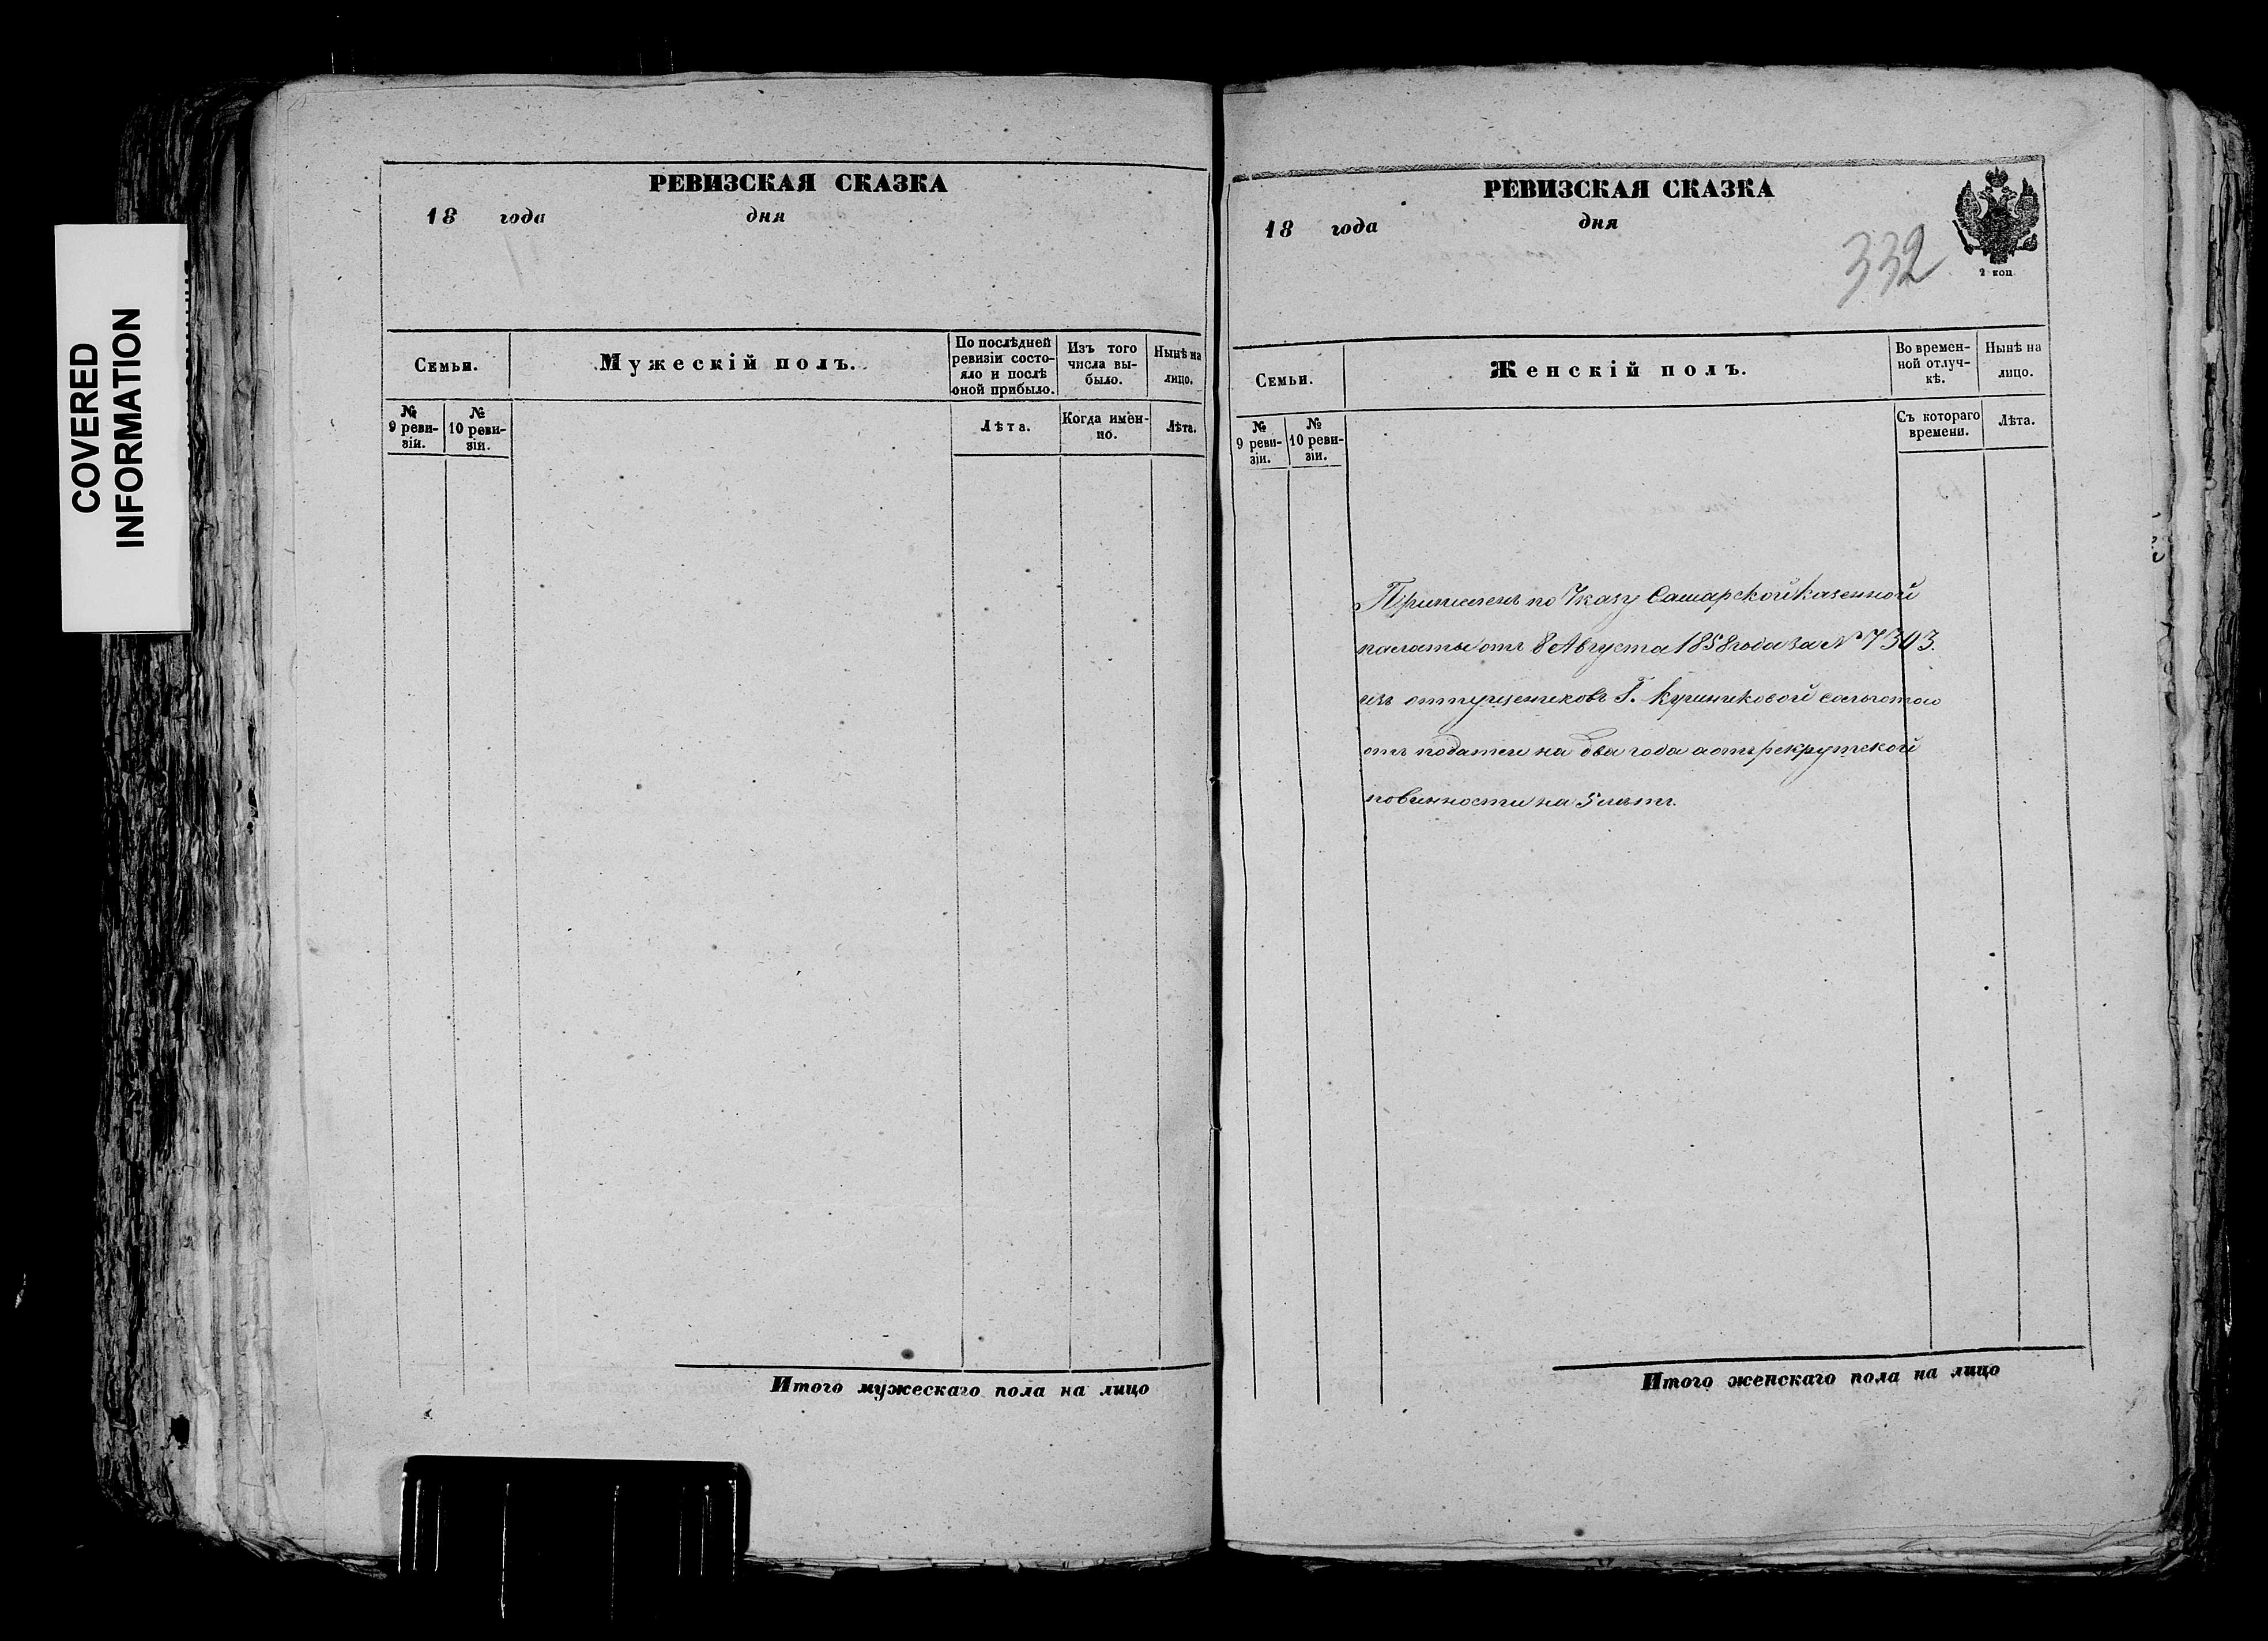 COVERED
INFORMATION
РЕВИЗСКАЯ СКАЗКА
18 года дня
Семьи.
Мужескій полъ.
По послѣдней
ревизіи состо-
яло и послѣ
оной прибыло.
Изъ того
числа вы-
было.
Нынѣ на
лицо.
№
9 реви-
зіи.
№
10 реви-
зіи.
Лѣта.
Когда имен-
но.
Лѣта.
Итого мужескаго пола на лицо
РЕВИЗСКАЯ СКАЗКА
18 года дня
332
2 коп
Семьи.
Женскій полъ.
Во времен-
ной отлуч-
кѣ.
Нынѣ на
лицо.
№
9 реви-
зіи.
№
10 реви-
зіи.
Съ котораго
времени.
Лѣта.
Причислен по Указу Самарской казенной
палаты отъ 8 Августа 1858 года за № 7303.
изъ отпущениковъ Г. Кушниковой сальготою
отъ податей на два года а отъ рекрутской
повинности на 5 лѣтъ.
Итого женскаго пола на лицо